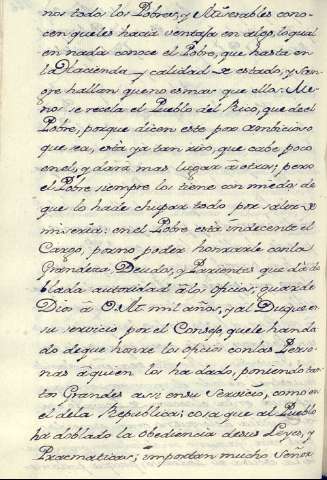 nos todos los Pobres, y Miserables cono-
cen queles hacie ventaja en algo, lo qual
en nada conoce el Pobre, que hasta en
la Hacienda y calidad de estado, y San-
gre hallan queno es mas que ellos: Me-
nos se recela el Pueblo del Rico, que de el
Pobre, porque dicen este por ambicioso
que sea, està ya tan rico, que cabe poco
en el, y dara mas lugar à otros; pero
el Pobre siempre los tiene con miedo de
que lo hade chupar todo por salir de
miseria: en el Pobre està indecente el
Cargo, por no poder honrarle con la
Grandeza, Deudos, y Parientes que dà do-
blada autoridad à los oficios; guarde
Dios à V. Mt. mil años, y al Duque en
su servicio por el Consejo, quele han da
do de que honre los oficios con las Perso-
nas à quien los ha dado, poniendo tan
tos Grandes assi en su Servicio, como en
el de la Republica; cosa que al Pueblo
ha doblado la obediencia de sus Leyes, y
Pracmaticas; importan mucho Señor